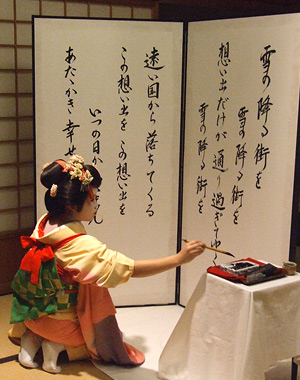 雪の降る街を
雪の降る街を
想い出だけが通り過ぎてゆく
雪の降る街を
遠い国から落ちてくる
この想い出をこの想い出を
いつの日か
あたゝかき幸せ